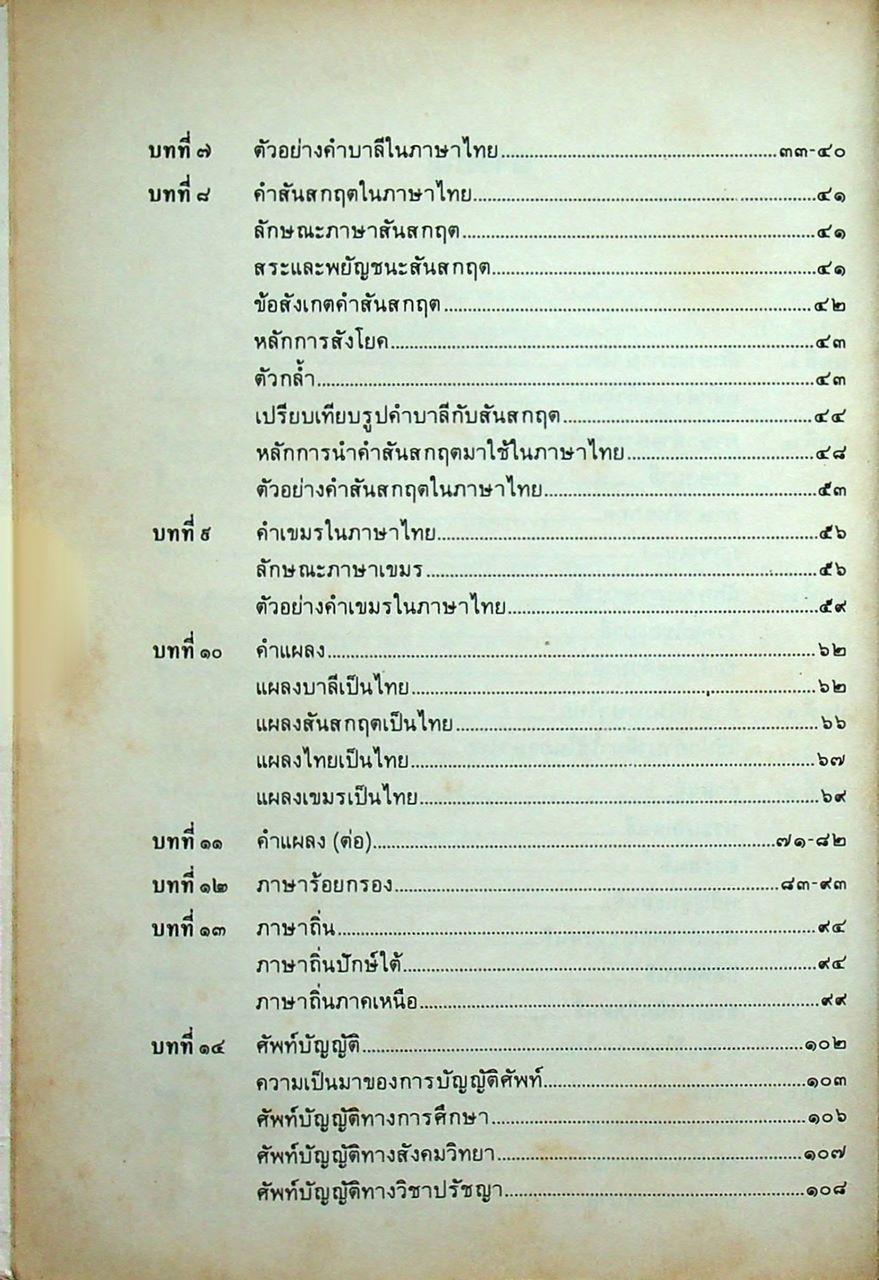 บทที่ ๗ ตัวอย่างคำบาลีในภาษาไทย ๓๓-๔๐
บทที่ ๘ คำสันสกฤตในภาษาไทย ๔๑
ลักษณะภาษาสันสกฤต ๔๑
สระและพยัญชนะสันสกฤต ๔๑
ข้อสังเกตคำสันสกฤต ๔๒
หลักการสังโยค ๔๓
ตัวกล้ำ ๔๓
เปรียบเทียบรูปคำบาลีกับสันสกฤต ๔๔
หลักการนำคำสันสกฤตมาใช้ในภาษาไทย ๔๘
ตัวอย่างคำสันสกฤตในภาษาไทย ๕๓
บทที่ ๙ คำเขมรในภาษาไทย ๕๖
ลักษณะภาษาเขมร ๕๖
ตัวอย่างคำเขมรในภาษาไทย ๕๙
บทที่ ๑๐ คำแผลง ๖๒
แผลงบาลีเป็นไทย ๖๒
แผลงสันสกฤตเป็นไทย ๖๖
แผลงไทยเป็นไทย ๖๗
แผลงเขมรเป็นไทย ๖๙
บทที่ ๑๑ คำแผลง (ต่อ) ๗๑-๘๒
บทที่ ๑๒ ภาษาร้อยกรอง ๘๓-๙๓
บทที่ ๑๓ ภาษาถิ่น ๙๔
ภาษาถิ่นปักษ์ใต้ ๙๔
ภาษาถิ่นภาคเหนือ ๙๙
บทที่ ๑๔ ศัพท์บัญญัติ ๑๐๒
ความเป็นมาของการบัญญัติศัพท์ ๑๐๓
ศัพท์บัญญัติทางการศึกษา ๑๐๖
ศัพท์บัญญัติทางสังคมวิทยา ๑๐๗
ศัพท์บัญญัติทางวิชาปรัชญา ๑๐๘